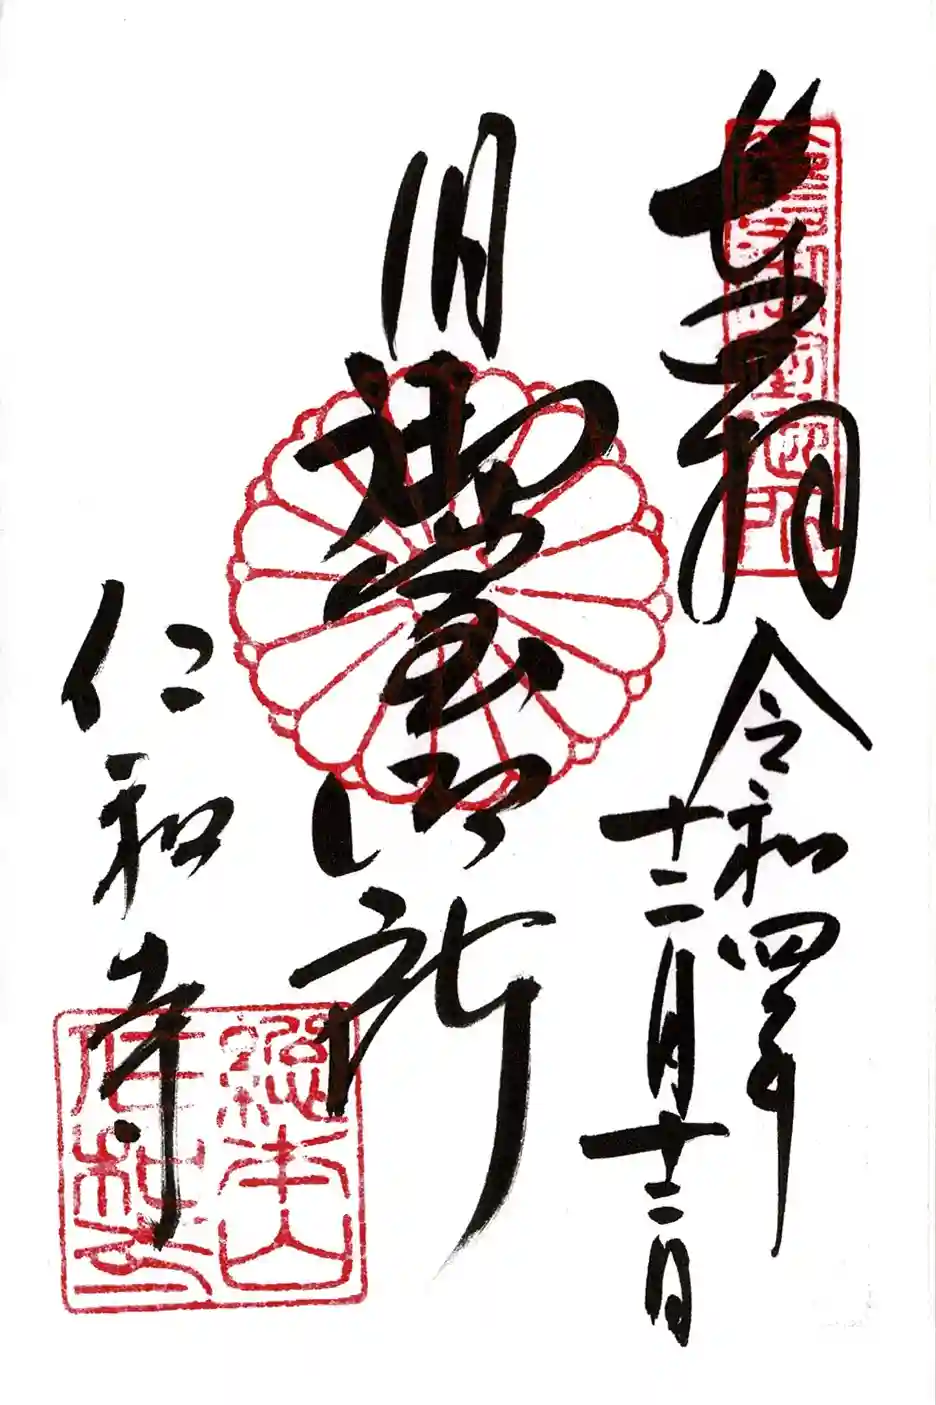 奉拝
令和四年
十二月十二日
旧御室御所
仁和寺
總本山
仁和寺印